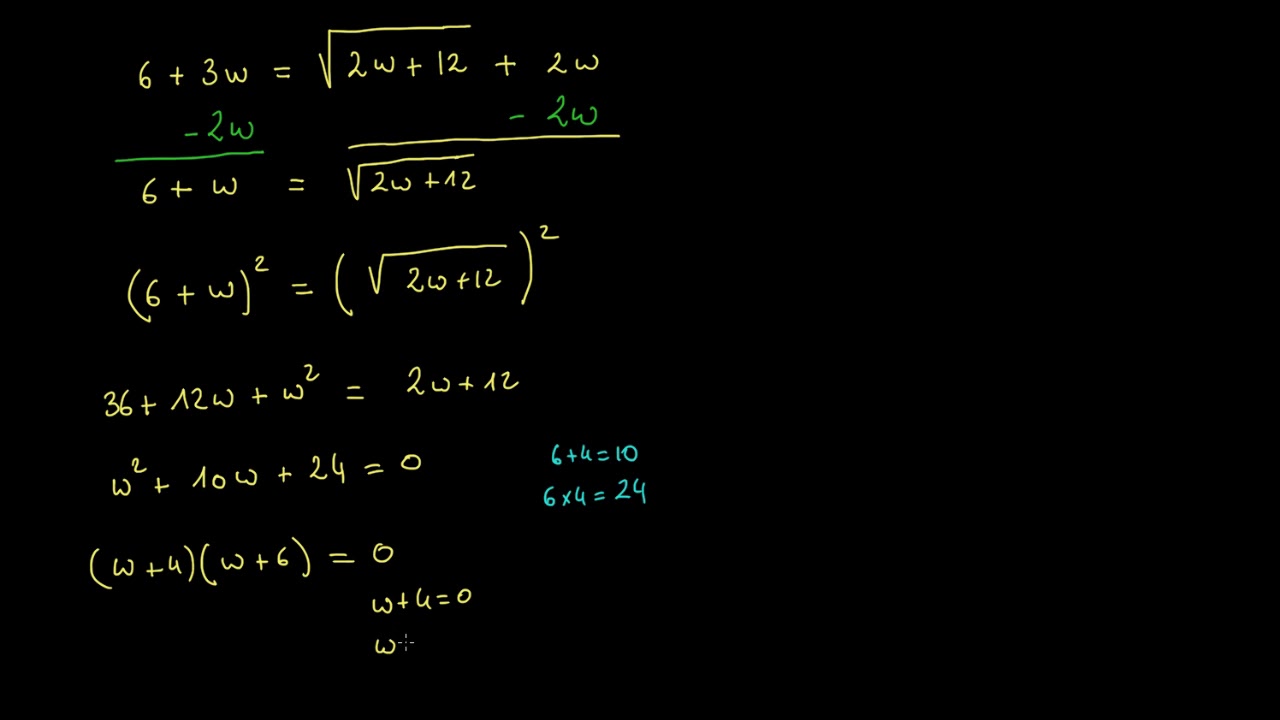 6 + 3w = √(2w + 12) + 2w
- 2w - 2w
6 + w = √(2w + 12)
(6 + w)² = (√(2w + 12))²
36 + 12w + w² = 2w + 12
w² + 10w + 24 = 0
6 + 4 = 10
6 × 4 = 24
(w + 4)(w + 6) = 0
w + 4 = 0
w